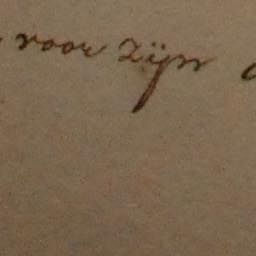 voor zijn